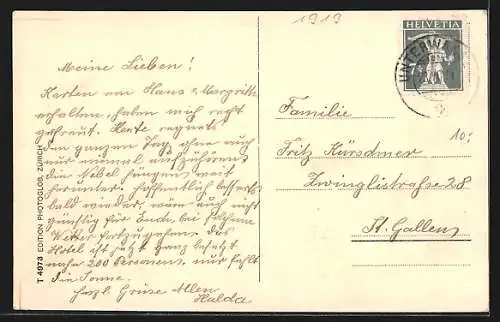 1919
HELVETIA
Meine Lieben!
Karten von Hans & Margrith
erhalten, haben mich recht
gefreut. Heute regnets
den ganzen Tag ohne auch
nur einmal aufzuhören
die Nebel hängen weit
herunter. Hoffentlich besserts
bald wieder, wäre auch nicht
günstig für Ende, bei solchem
Wetter fortzugehen. Das
Hotel ist jetzt ganz besetzt
nahe 200 Personen, nur fehlt
die Sonne.
Herzl. Grüsse Allen
Hulda
Familie
Fritz Kürsdner
Zwinglistrasse 28
St. Gallen
10.-
T 4973 EDITION PHOTOGLOB, ZÜRICH